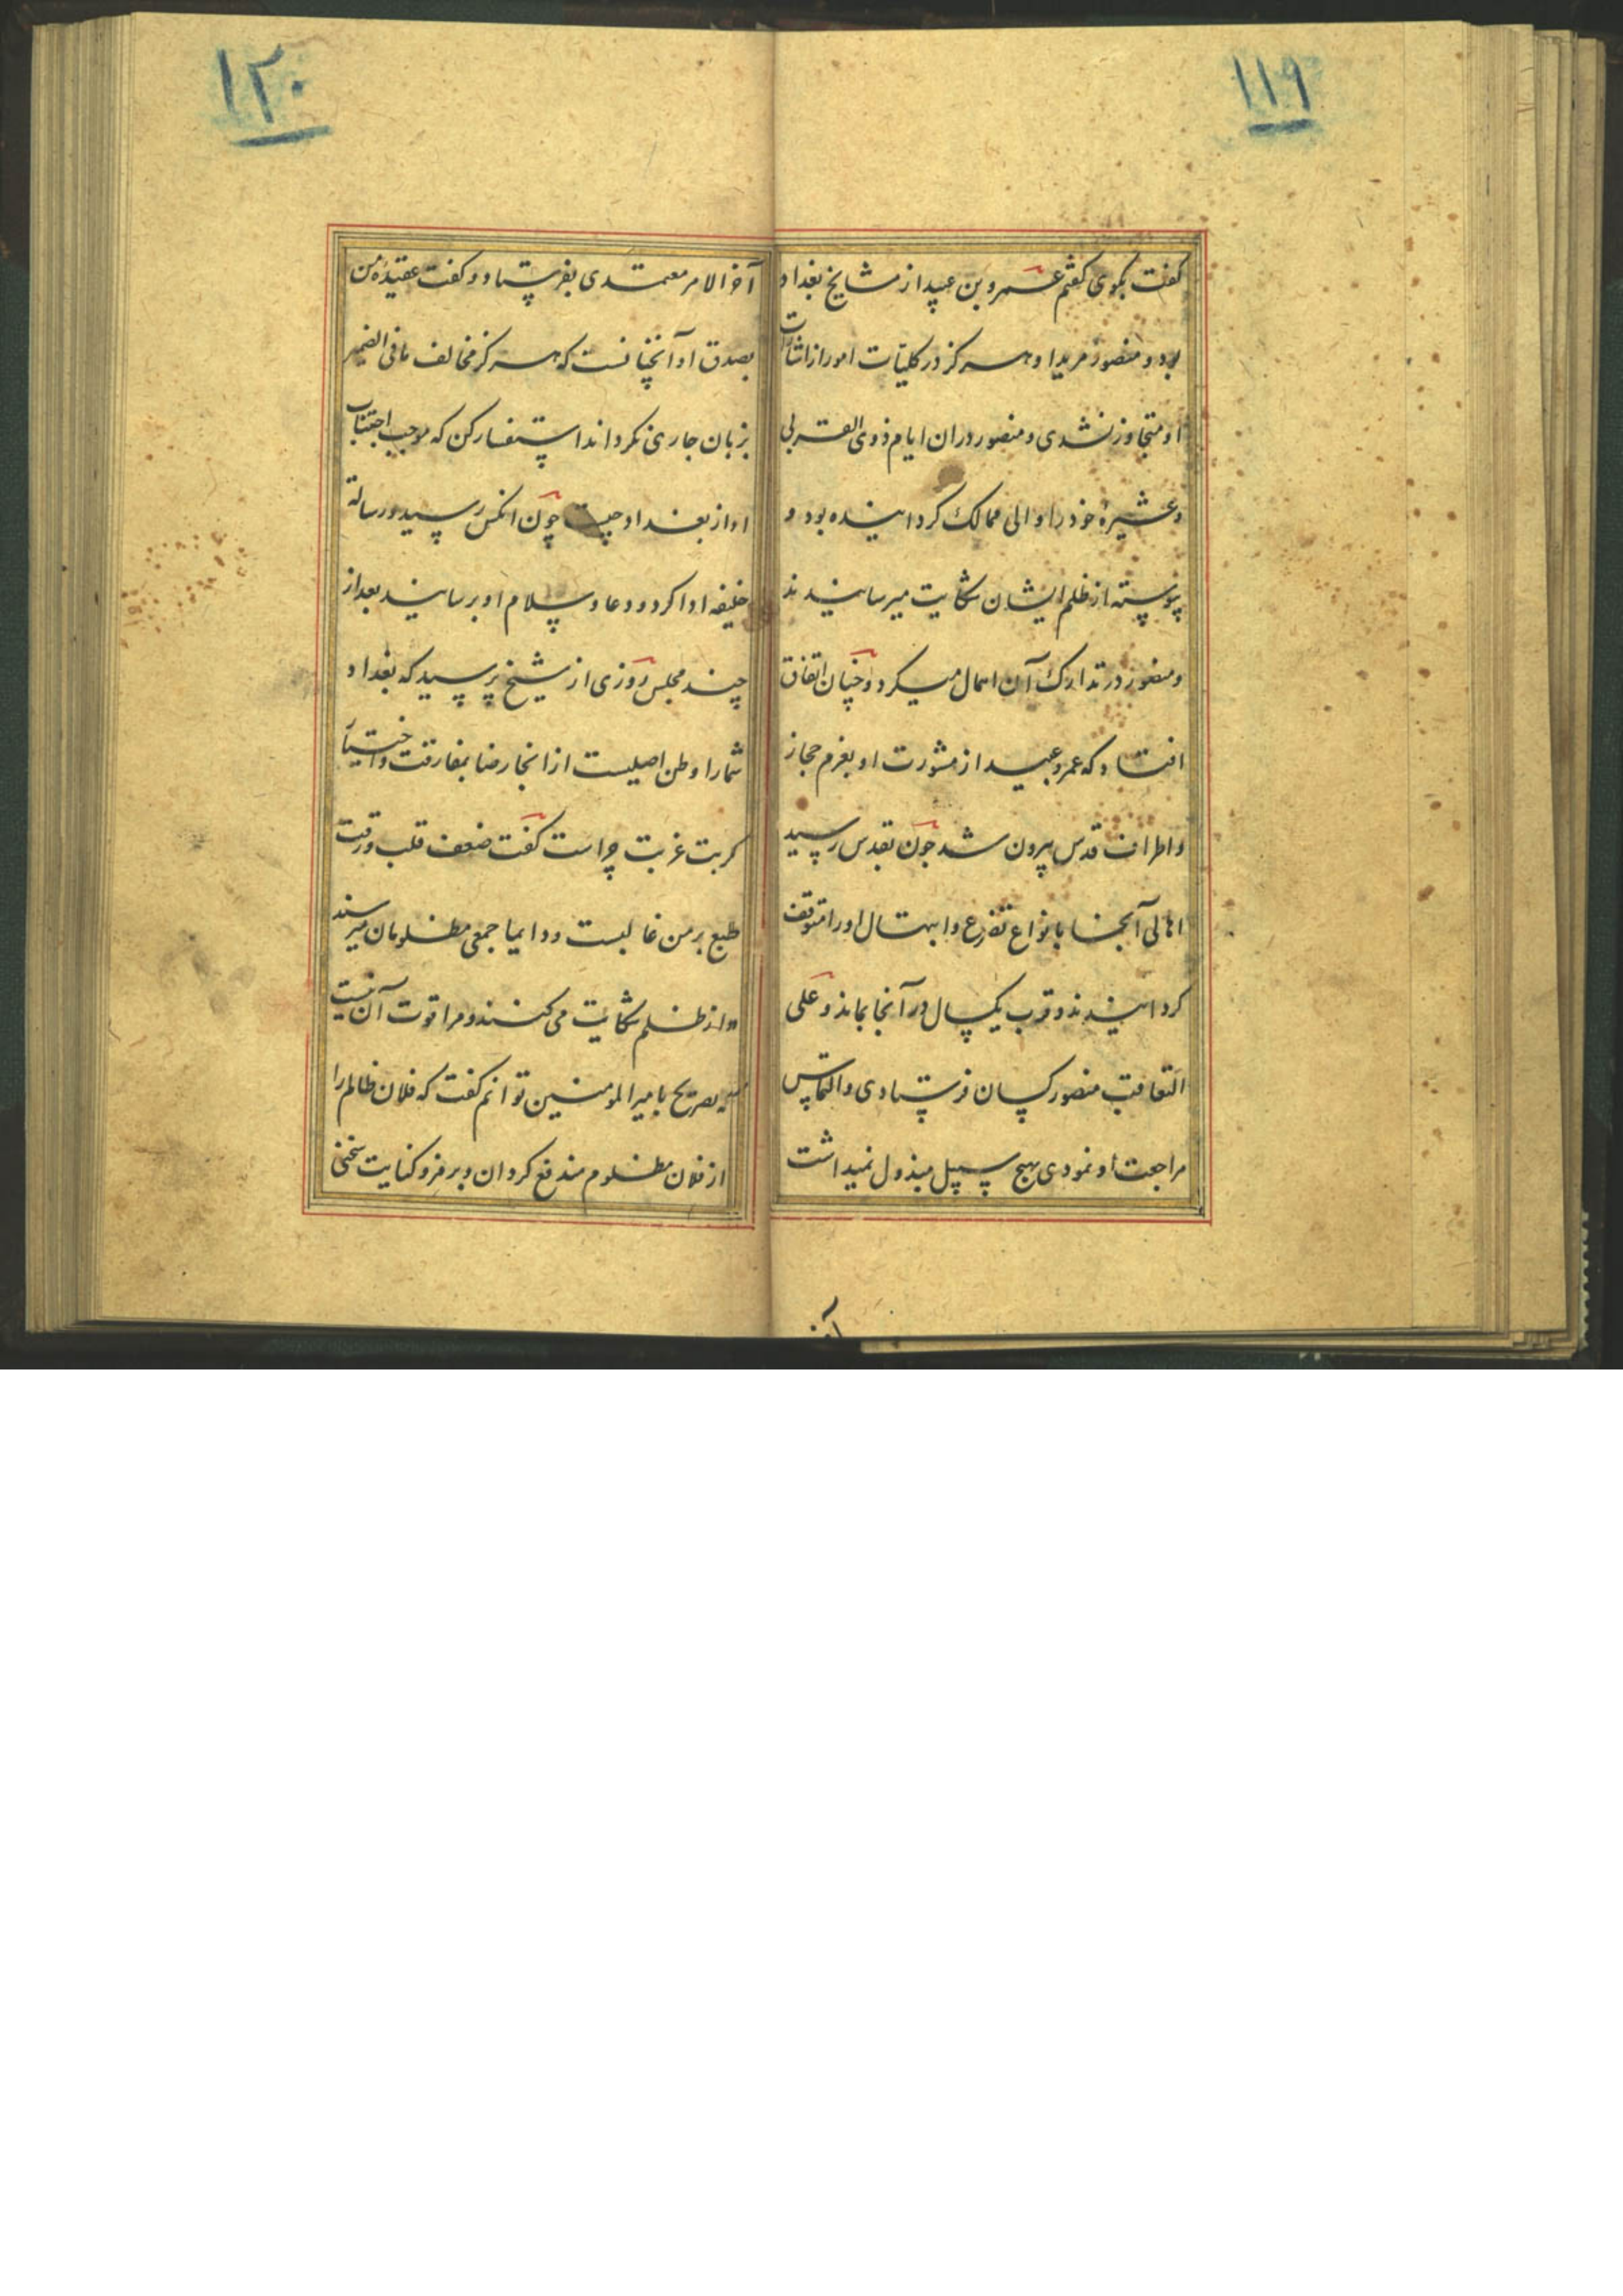 ۱۱۹
کفت بکوی کفتم عمرو بن عبید از مشایخ بغداد
بود و منصور مرید او هرکز در کلیّات امور از اشارات
او متجاوز نشدی و منصور دران ایام ذوی القربی
و عشیرهٔ خود را والی ممالک کردانیده بود و
پیوسته از ظلم ایشان شکایت میرسانیدند
و منصور در تدارک آن اهمال میکرد و چنان اتفاق
افتاد که عمرو عبید از مشورت او بعزم حجاز
و اطراف قدس بیرون شد چون بقدس رسید
اهالی آنجا بانواع تضرع و ابتهال او را متوقف
کردانیدند و قرب یکسال در آنجا بماند و علی
التعاقب منصور کسان فرستادی و التماس
مراجعت او نمودی بهیچ سبیل مبذول نمیداشت
آخر
۱۲۰
آخر الامر معتمدی بفرستاد و کفت عقیدهٔ من
بصدق او آنچنانست که هرکز مخالف ما فی الضمیر
بزبان جاری نکرداند استفسار کن که موجب اجتناب
او از بغداد چیست چون انکس رسید و رسالة
خلیفه ادا کرد و دعا و سلام او برسانید بعد از
چند مجلس روزی از شیخ پرسید که بغداد
شما را وطن اصلیست از انجا رضا بمفارقت و اختیار
کربت غربت چراست کفت ضعف قلب و رقت
طبع بر من غالبست و دایما جمعی مظلومان میرسند
و از ظلم شکایت می کنند و مرا قوت آن نیست
که بصریح با میر المومنین توانم کفت که فلان ظالم را
از فلان مظلوم مندفع کردان و برمز و کنایت سخنی